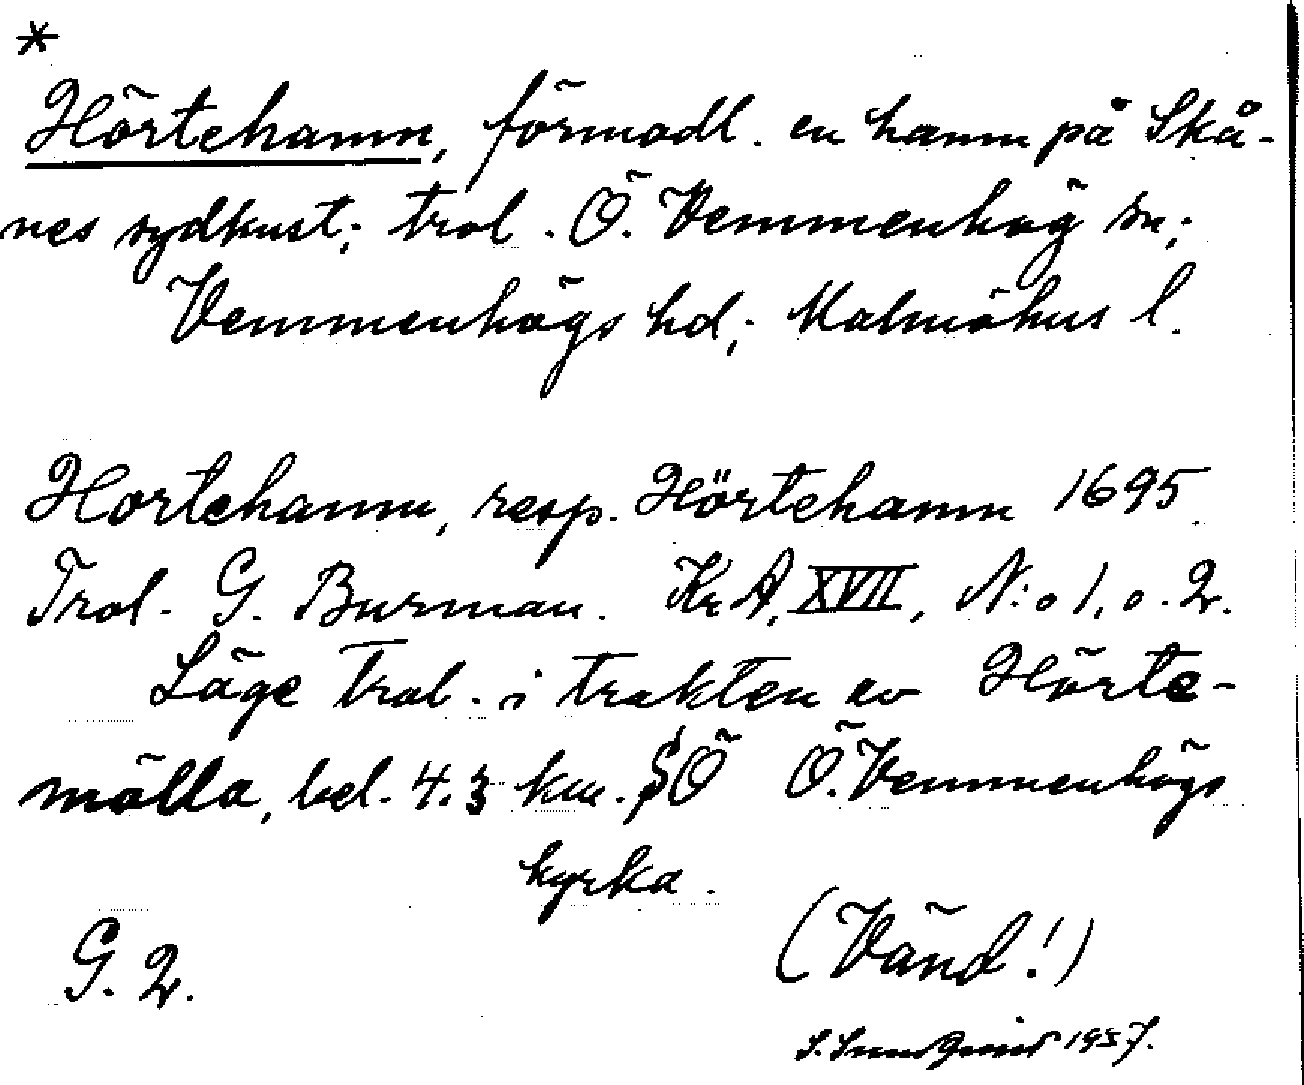 *
Hörtehamn, förmodl. en hamn på Skå-
nes sydkust; trol. Ö. Vemmenhög sn;
Vemmenhögs hd; Malmöhus l.
Hortehamn, resp. Hörtehamn 1695.
Trol. G. Burman. Kr A, XVII, N:o 1, o. 2.
Läge trol. i trakten av Hörte-
mölla, bel. 4.3 km. SÖ Ö. Vemmenhögs
kyrka.
(Vänd!)
G. 2.
S. 1937.